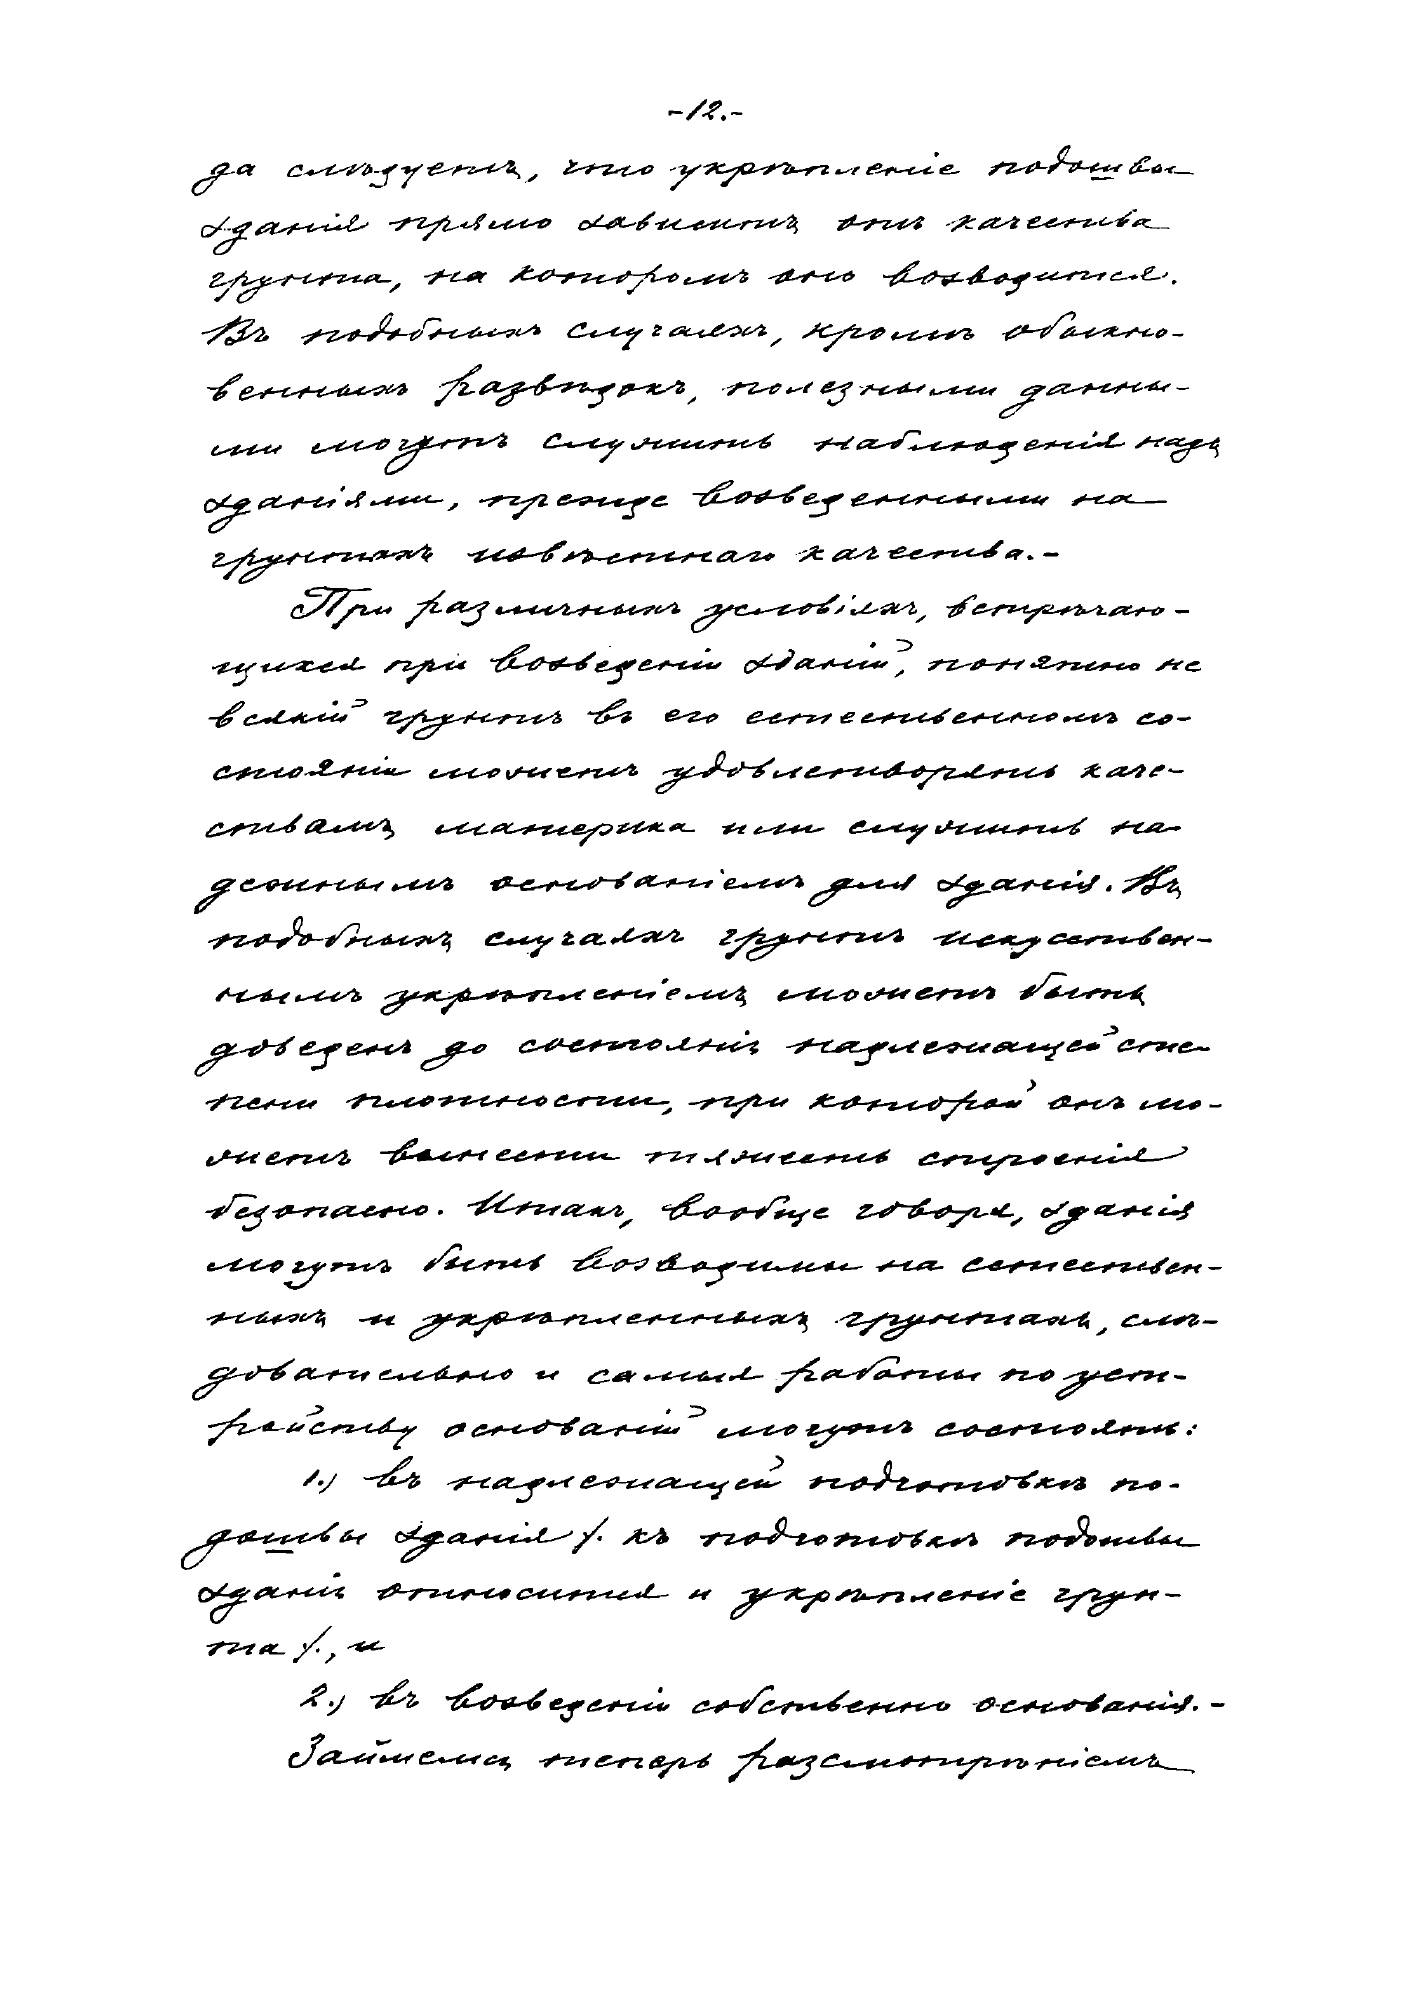 -12.-
да слѣдуетъ, что укрѣпленіе подошвы
зданія прямо зависитъ отъ качества
грунта, на которомъ оно возводится.
Въ подобныхъ случаяхъ, кромѣ обыкно-
венныхъ развѣдокъ, полезными данны-
ми могутъ служить наблюденія надъ
зданіями, прежде возведенными на
грунтахъ извѣстнаго качества.-
При различныхъ условіяхъ, встрѣчаю-
щихся при возведеніи зданій, понятно не
всякій грунтъ въ его естественномъ со-
стояніи можетъ удовлетворять каче-
ствамъ материка или служить на-
дежнымъ основаніемъ для зданія. Въ
подобныхъ случаяхъ грунтъ искуствен-
нымъ укрѣпленіемъ можетъ быть
доведенъ до состоянія надлежащей сте-
пени плотности, при которой онъ мо-
жетъ вынести тяжесть строенія
безопасно. Итакъ, вообще говоря, зданія
могутъ быть возводимы на естествен-
ныхъ и укрѣпленныхъ грунтахъ, слѣ-
довательно и самыя работы по уст-
ройству основаній могутъ состоять:
1.) въ надлежащей подготовкѣ по-
дошвы зданія /. къ подготовкѣ подошвы
зданія относится и укрѣпленіе грун-
та /., и
2.) въ возведеніи собственно основанія.-
Займемся теперь разсмотрѣніемъ